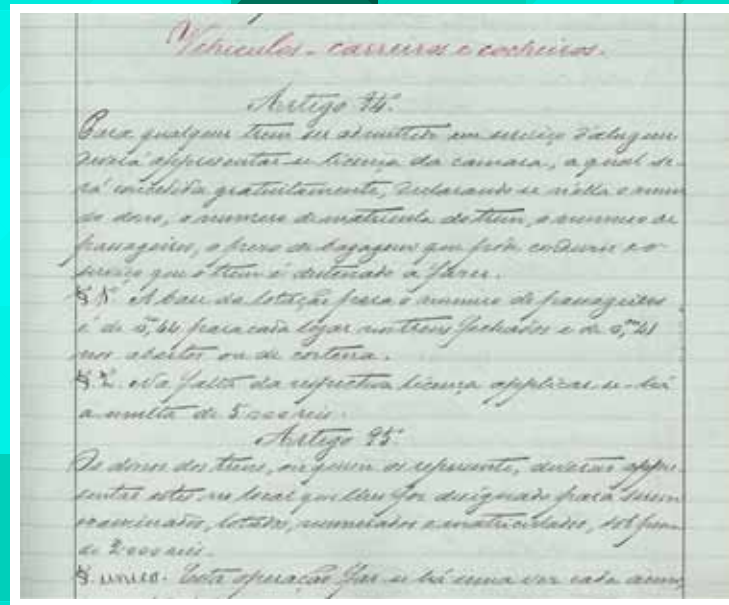 Vehiculos - carreiros e cocheiros.
Artigo 94º
Para qualquer trem ser admittido em serviço d'aluguer
deverá appresentar-se licença da camara, a qual se-
rá concedida gratuitamente, declarando-se n'ella o nome
do dono, o numero de matricula do trem, o numero de
passageiros, o peso de bagagem que pode conduzir e o
serviço que o trem é destinado a fazer.
§ 1º A base da lotação para o numero de passageiros
é de 0,44 para cada logar nos trens fechados e de 0,m41
nos abertos ou de cortina.
§ 2. Na falta da respectiva licença applicar-se-há
a multa de 5000 reis.
Artigo 95º
Os donos dos trens, ou quem os represente, deverão appre-
sentar estes no local que lhes for designado para serem
examinados, lotados, numerados e matriculados, sob pena
de 2000 reis.
§ unico. Esta operação far-se-há uma vez cada anno,